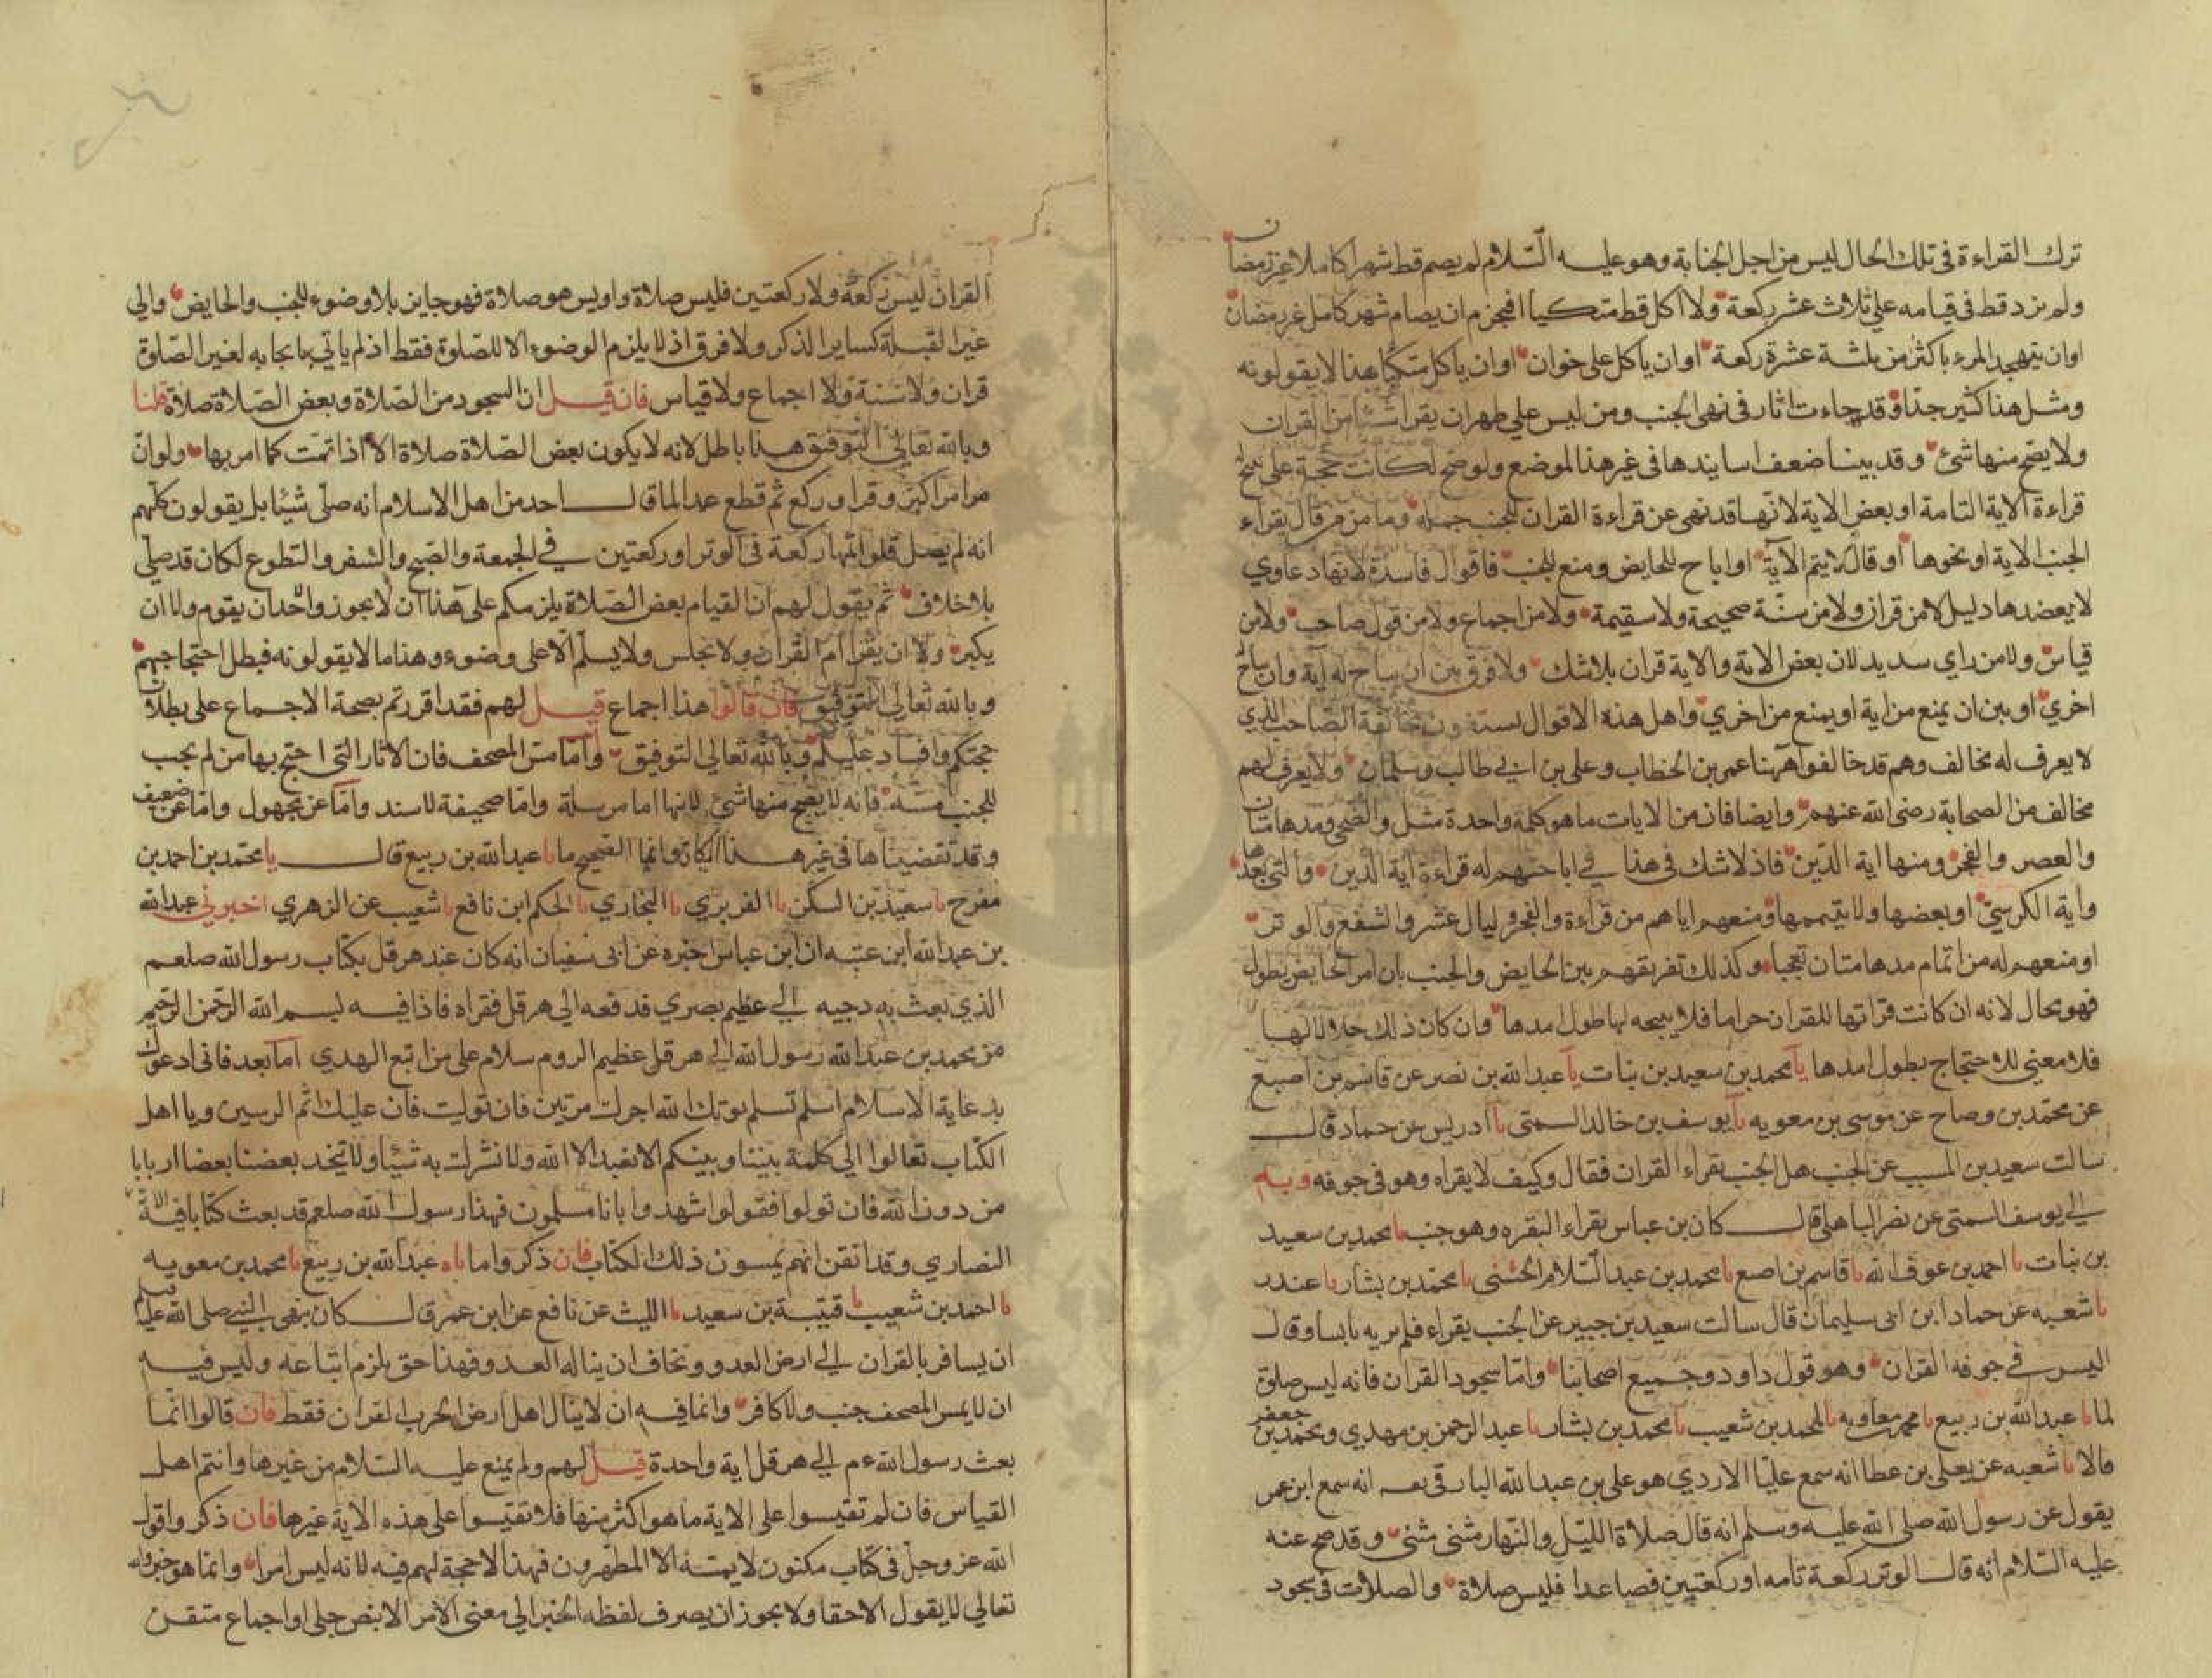 ترك القراءة في تلك الحال ليس من اجل الجنابة وهو عليه السّلام لم يصم قط شهرا كاملا غير رمضان
ولم يزد قط في قيامه علي ثلاث عشر ركعة ولا اكل قط متكيا افيجزم ان يصام شهر كامل غير رمضان
اوان يتهجد المرء باكثر من ثلثة عشرة ركعة اوان ياكل على خوان اوان ياكل متكيا هذا لا يقولونه
ومثل هذا كثير جدّا وقد جاءت اثار في نهي الجنب ومن ليس علي طهر ان يقرا شيئا من القران
ولا يصح منها شئ وقد بينا ضعف اسايندها في غير هذا الموضع ولو صح لكانت حجة على من يبيح له
قراءة الاية التامة او بعض الاية لانّها قد نهى عن قراءة القران للجنب جملة وما من قال يقراء
الجنب الاية او نحوها او قال لا يتم الآية او اباح للحايض ومنع الجنب فاقوال فاسدة لانها دعاوي
لا يعضدها دليل لا من قران ولا من سنّة صحيحة ولا سقيمة ولا من اجماع ولا من قول صاحب ولا من
قياس ولا من راي سديد لان بعض الاية والاية قران بلا شك ولا فرق بين ان يباح له آية وان يباح له
اخري او بين ان يمنع من اية او يمنع من اخري واهل هذه الاقوال يستشنعون مخالفة الصّاحب الذي
لا يعرف له مخالف وهم قد خالفوا هنا عمر بن الخطاب وعلى بن ابي طالب وسلمان ولا يعرف لهم
مخالف من الصحابة رضى الله عنهم وايضا فان من الايات ما هو كلمة واحدة مثل والضحى ومدهامتان
والعصر والفجر ومنها اية الدّين فاذ لا شك في هذا في اباحتهم له قراءة اية الدّين والتي بعدها
واية الكرسيّ او بعضها ولا يتممها ومنعهم اياهم من قراءة والفجر وليال عشر والشفع والوتر
او منعهم له من اتمام مدهامتان تعجبا وكذلك تفريقهم بين الحايض والجنب بان امر الحايض يطول
فهو محال لانه ان كانت قراتها للقران حراما فلا يبيحه لها طول امدها وان كان ذلك حلالا لها
فلا معنى للاحتجاج بطول امدها يا محمد بن سعيد بن نبات يا عبد الله بن نصر عن قاسم بن اصبع
عن محمد بن وضاح عن موسى بن معويه نا يوسف بن خالد السمتى نا ادريس عن حماد قال
سالت سعيد بن المسيب عن الجنب هل الجنب يقراء القران فقال وكيف لا يقراه وهو في جوفه وبه
الي يوسف السمتى عن نصر الباهلى قال كان بن عباس يقراء البقره وهو جنب نا محمد بن سعيد
بن نبات نا احمد بن عوف الله نا قاسم بن اصبع نا محمد بن عبد السّلام الخشنى نا محمد بن بشار نا غندر
نا شعبه عن حماد ابن ابى سليمان قال سالت سعيد بن جبير عن الجنب يقراء فلم ير به باسا وقال
اليس في جوفه القران وهو قول داود وجميع اصحابنا وامّا سجود القران فانه ليس صلوة
لما نا عبد الله بن ربيع نا محمد معاويه نا احمد بن شعيب نا محمد بن بشار نا عبد الرحمن بن مهدي ومحمد بن جعفر
قالا نا شعبه عن يعلى بن عطا انه سمع عليّا الازدي هو على بن عبد الله البارقي بعـ انه سمع ابن عمر
يقول عن رسول الله صلى الله عليه وسلم انه قال صلاة اللّيل والنّهار مثنى مثنى وقد صح عنه
عليه السّلام انه قال الوتر ركعة تامه او ركعتين فصاعدا فليس صلاة والصلات في سجود
القران ليس ركعة ولا ركعتين فليس صلاة واو ليس هو صلاة فهو جايز بلا وضوء للجنب والحايض والى
غير القبلة كساير الذكر ولا فرق اذ لا يلزم الوضوء الا للصّلوة فقط اذ لم ياتي بايجابه لغير الصّلوة
قران ولا سنة ولا اجماع ولا قياس فان قيل ان السجود من الصّلاة وبعض الصّلاة صلاة قلنا
وبالله تعالى التوفيق هذا باطل لانه لا يكون بعض الصّلاة صلاة الا اذا تمّت كما امر بها ولو انّ
مرا من اكبر وقرا وركع ثم قطع عمدا لما قال احد من اهل الاسلام انه صلّى شيئا بل يقولون كلّهم
انه لم يصل فلو اتمها ركعة في الوتر او ركعتين في الجمعة والصّبح والسفر والتطوع لكان قد صلّي
بلا خلاف ثم يقول لهم ان القيام بعض الصّلاة يلزمكم على هذا ان لا يجوز واحد ان يقوم ولا ان
يكبر ولا ان يقرا ام القران ولا يجلس ولا يسلّم الّا على وضوء وهذا ما لا يقولونه فبطل احتجاجهم
وبالله تعالى التوفيق فان قالوا هذا اجماع قيل لهم فقد اقررتم بصحة الاجماع على بطلان
حجتكم وافساد عليكم وبالله تعالي التوفيق وامّا مسّ المصحف فان الاثار التى احتج بها من لم يجب
للجنب مسّه فانه لا يصح منها شئ لانها اما مرسلة وامّا صحيفة لا سند وامّا عن مجهول وامّا عن ضعيف
وقد تقصيناها في غير هذا المكان وانما الصّحيح ما نا عبد الله بن ربيع قال يا محمد بن احمد بن
مفرح نا سعيد بن السكن نا الفربري نا البخاري نا الحكم ابن نافع نا شعيب عن الزهري اخبرني عبد الله
بن عبد الله ابن عتبه ان ابن عباس اخبره عن ابى سفيان انه كان عند هرقل بكتاب رسول الله صلعم
الذي بعث به دحيه الي عظيم بصري فدفعه الي هرقل فقراه فاذا فيه بسم الله الرّحمن الرّحيم
من محمد بن عبد الله رسول الله الي هرقل عظيم الروم سلام على من اتبع الهدي امّا بعد فاني ادعوك
بدعاية الاسلام اسلم تسلم يوتك الله اجرك مرتين فان تولّيت فان عليك اثم الريسين ويا اهل
الكتاب تعالوا الي كلمة بيننا وبينكم الا نعبد الا الله ولا نشرك به شيئا ولا يتخذ بعضنا بعضا اربابا
من دون الله فان تولوا فقولوا اشهدوا بانا مسلمون فهذا رسول الله صلعم قد بعث كتابا فيه الي
النصاري وقد اتقن انهم يمسون ذلك الكتاب فان ذكروا ما ناه عبد الله بن ربيع نا محمد بن معويه
نا احمد بن شعيب نا قتيبة بن سعيد نا الليث عن نافع عن ابن عمر قال كان ينهى النبي صلى الله عليه وسلم
ان يسافر بالقران الي ارض العدو ونخاف ان يناله العدو فهذا حق يلزم اتباعه وليس فيه
ان لا يمس المصحف جنب ولا كافر وانما فيه ان لا ينال اهل ارض الحرب القران فقط فان قالوا انّما
بعث رسول الله ءم الي هرقل اية واحدة قيل لهم ولم يمنع عليه السّلام من غيرها وانتم اهل
القياس فان لم تقيسوا على الاية ما هو اكثر منها فلا تقيسوا على هذه الاية غيرها فان ذكروا قول
الله عز وجل في كتاب مكنون لا يمسّه الا المطهرون فهذا لا حجة لهم فيه لانه ليس امرا وانما هو خبر والله
تعالي لا يقول الا حقا ولا يجوز ان يصرف لفظه الخبر الي معنى الامر الا بنص جلى او اجماع متقن